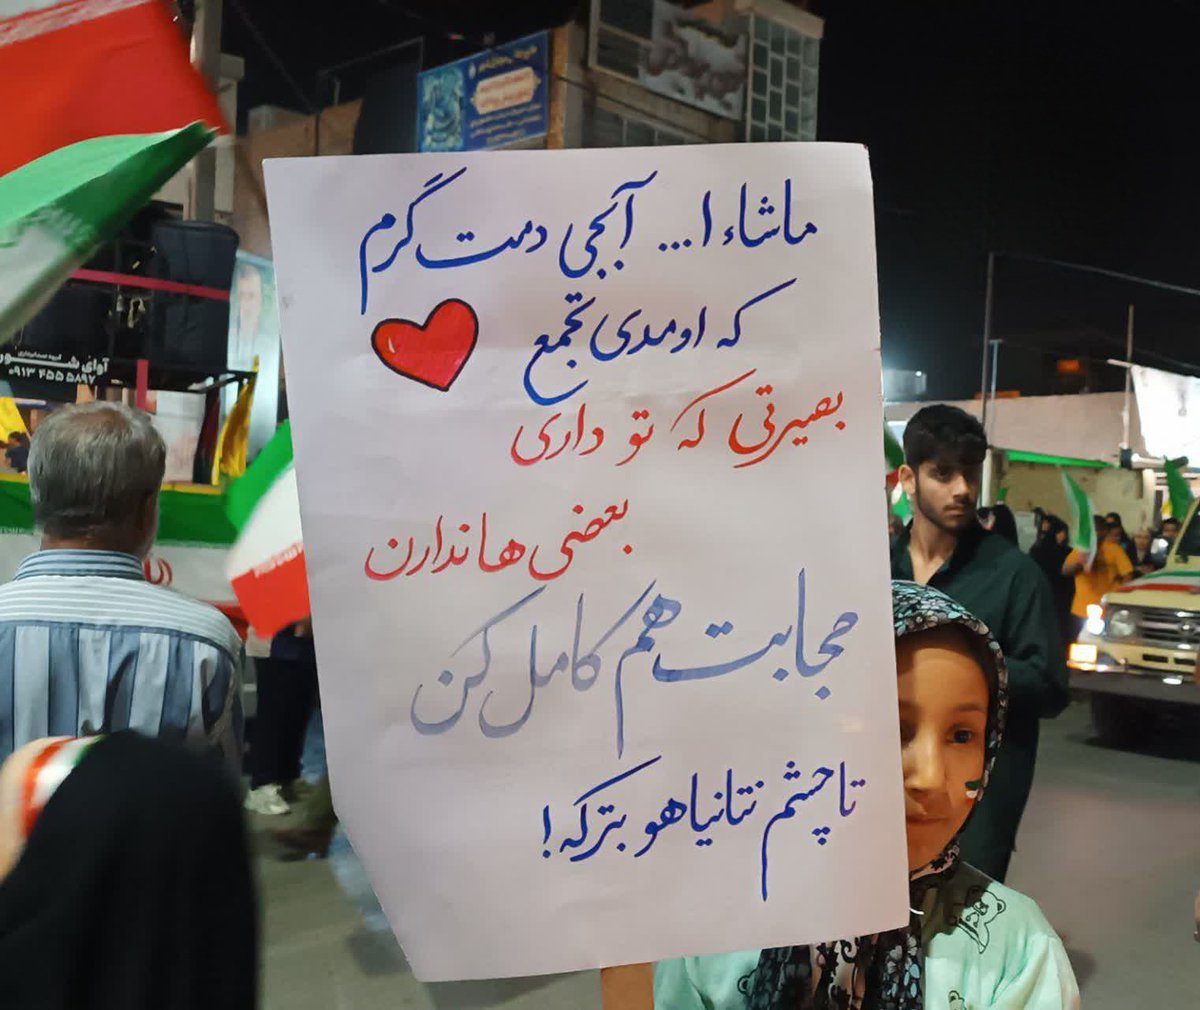 ماشاء ا... آبجی دمت گرم
که اومدی تجمع
بصیرتی که تو داری
بعضی ها ندارن
حجابت هم کامل کن
تا چشم نتانیاهو بترکه!
آوای شـور
۰۹۱۳ ۴۵۵ ۵۸۹۷